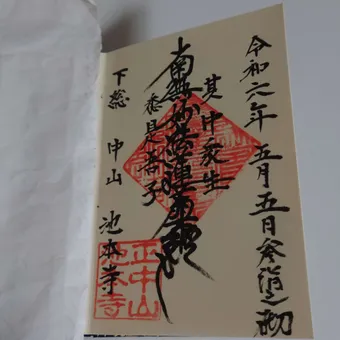 令和六年 五月五日 参詣之砌
其中衆生
南無妙法蓮華経
悉是吾子
下総 中山 池本寺
正中山
池本寺